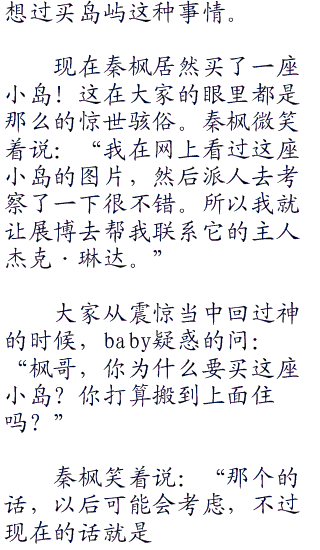 想过买岛屿这种事情。
现在秦枫居然买了一座
小岛！这在大家的眼里都是
那么的惊世骇俗。秦枫微笑
着说：“我在网上看过这座
小岛的图片，然后派人去考
察了一下很不错。所以我就
让展博去帮我联系它的主人
杰克·琳达。”
大家从震惊当中回过神
的时候，baby疑惑的问：
“枫哥，你为什么要买这座
小岛？你打算搬到上面住
吗？”
秦枫笑着说：“那个的
话，以后可能会考虑，不过
现在的话就是